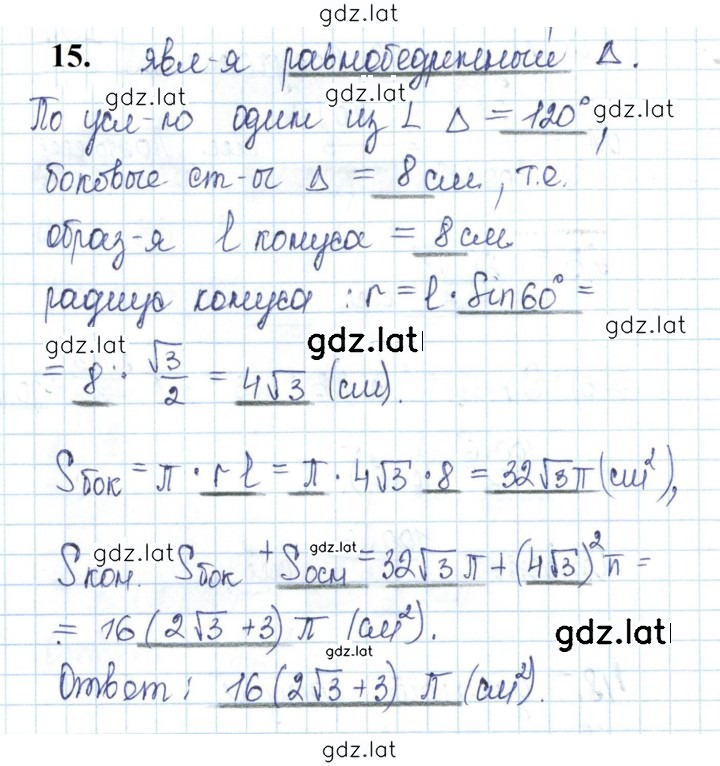 gdz.lat
15. явл-я равнобедренный Δ.
gdz.lat gdz.lat gdz.lat
По усл-ю один из L Δ = 120°,
боковые ст-ы Δ = 8 см, т.е.
образ-я l конуса = 8 см
радиус конуса : r = l · Sin60° =
gdz.lat gdz.lat gdz.lat
= 8 · √3/2 = 4√3 (см).
Sбок = π · r l = π · 4√3 · 8 = 32√3π (см²),
gdz.lat gdz.lat
Sкон. Sбок + Sосн = 32√3 π + (4√3)² π =
= 16 (2√3 + 3) π (см²).
gdz.lat gdz.lat
Ответ: 16 (2√3 + 3) π (см²).
gdz.lat